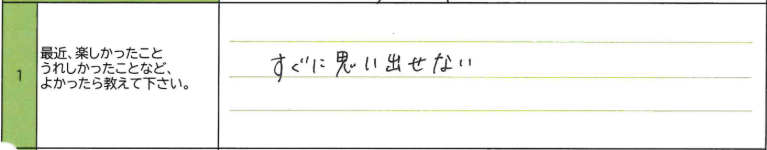 1
最近、楽しかったこと
うれしかったことなど、
よかったら教えて下さい。
すぐに思い出せない